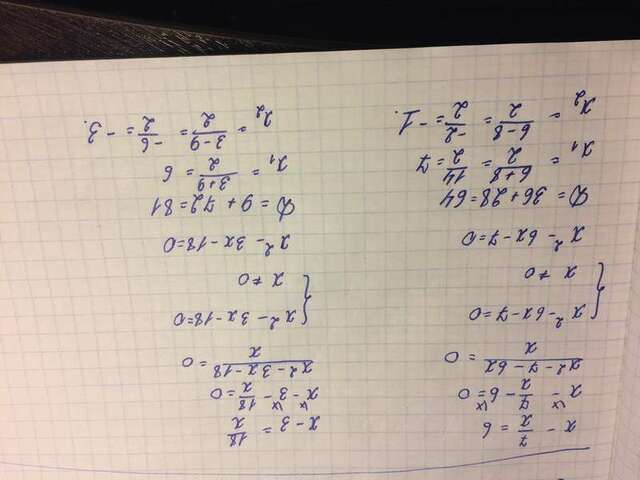 x - 7/x = 6
x^x - 7/x - 6^x = 0
(x² - 7 - 6x)/x = 0
{ x² - 6x - 7 = 0
x ≠ 0
x² - 6x - 7 = 0
D = 36 + 28 = 64
x₁ = (6+8)/2 = 14/2 = 7
x₂ = (6-8)/2 = -2/2 = -1.
x - 3 = 18/x
x^x - 3^x - 18/x = 0
(x² - 3x - 18)/x = 0
{ x² - 3x - 18 = 0
x ≠ 0
x² - 3x - 18 = 0
D = 9 + 72 = 81
x₁ = (3+9)/2 = 6
x₂ = (3-9)/2 = -6/2 = -3.